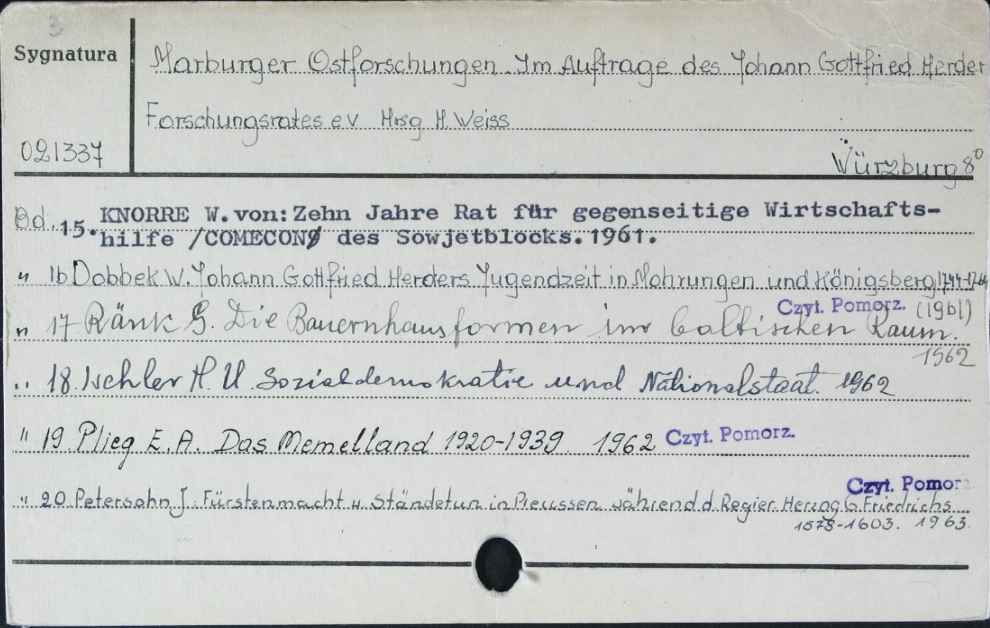 3
Sygnatura
Marburger Ostforschungen. Im Auftrage des Johann Gottfried Herder
Forschungsrates e.v Hrsg H. Weiss
021337
Würzburg 8°
Bd. 15. KNORRE W.von: Zehn Jahre Rat für gegenseitige Wirtschafts-
hilfe /COMECON/ des Sowjetblocks. 1961.
" 16 Dobbek W. Johann Gottfried Herders Jugendzeit in Mohrungen und Königsberg 1744-1764
Czyt. Pomorz. (1961)
" 17 Ränk G. Die Bauernhausformen im baltischen Raum.
1962
" 18. Wehler H. U. Sozialdemokratie und Nationalstaat. 1962
" 19. Plieg E. A. Das Memelland 1920-1939 1962 Czyt. Pomorz.
Czyt. Pomorz
" 20 Petersohn J. Fürstenmacht u. Ständetum in Preussen während d. Regier. Herzog G. Friedrichs
1578-1603. 1963.